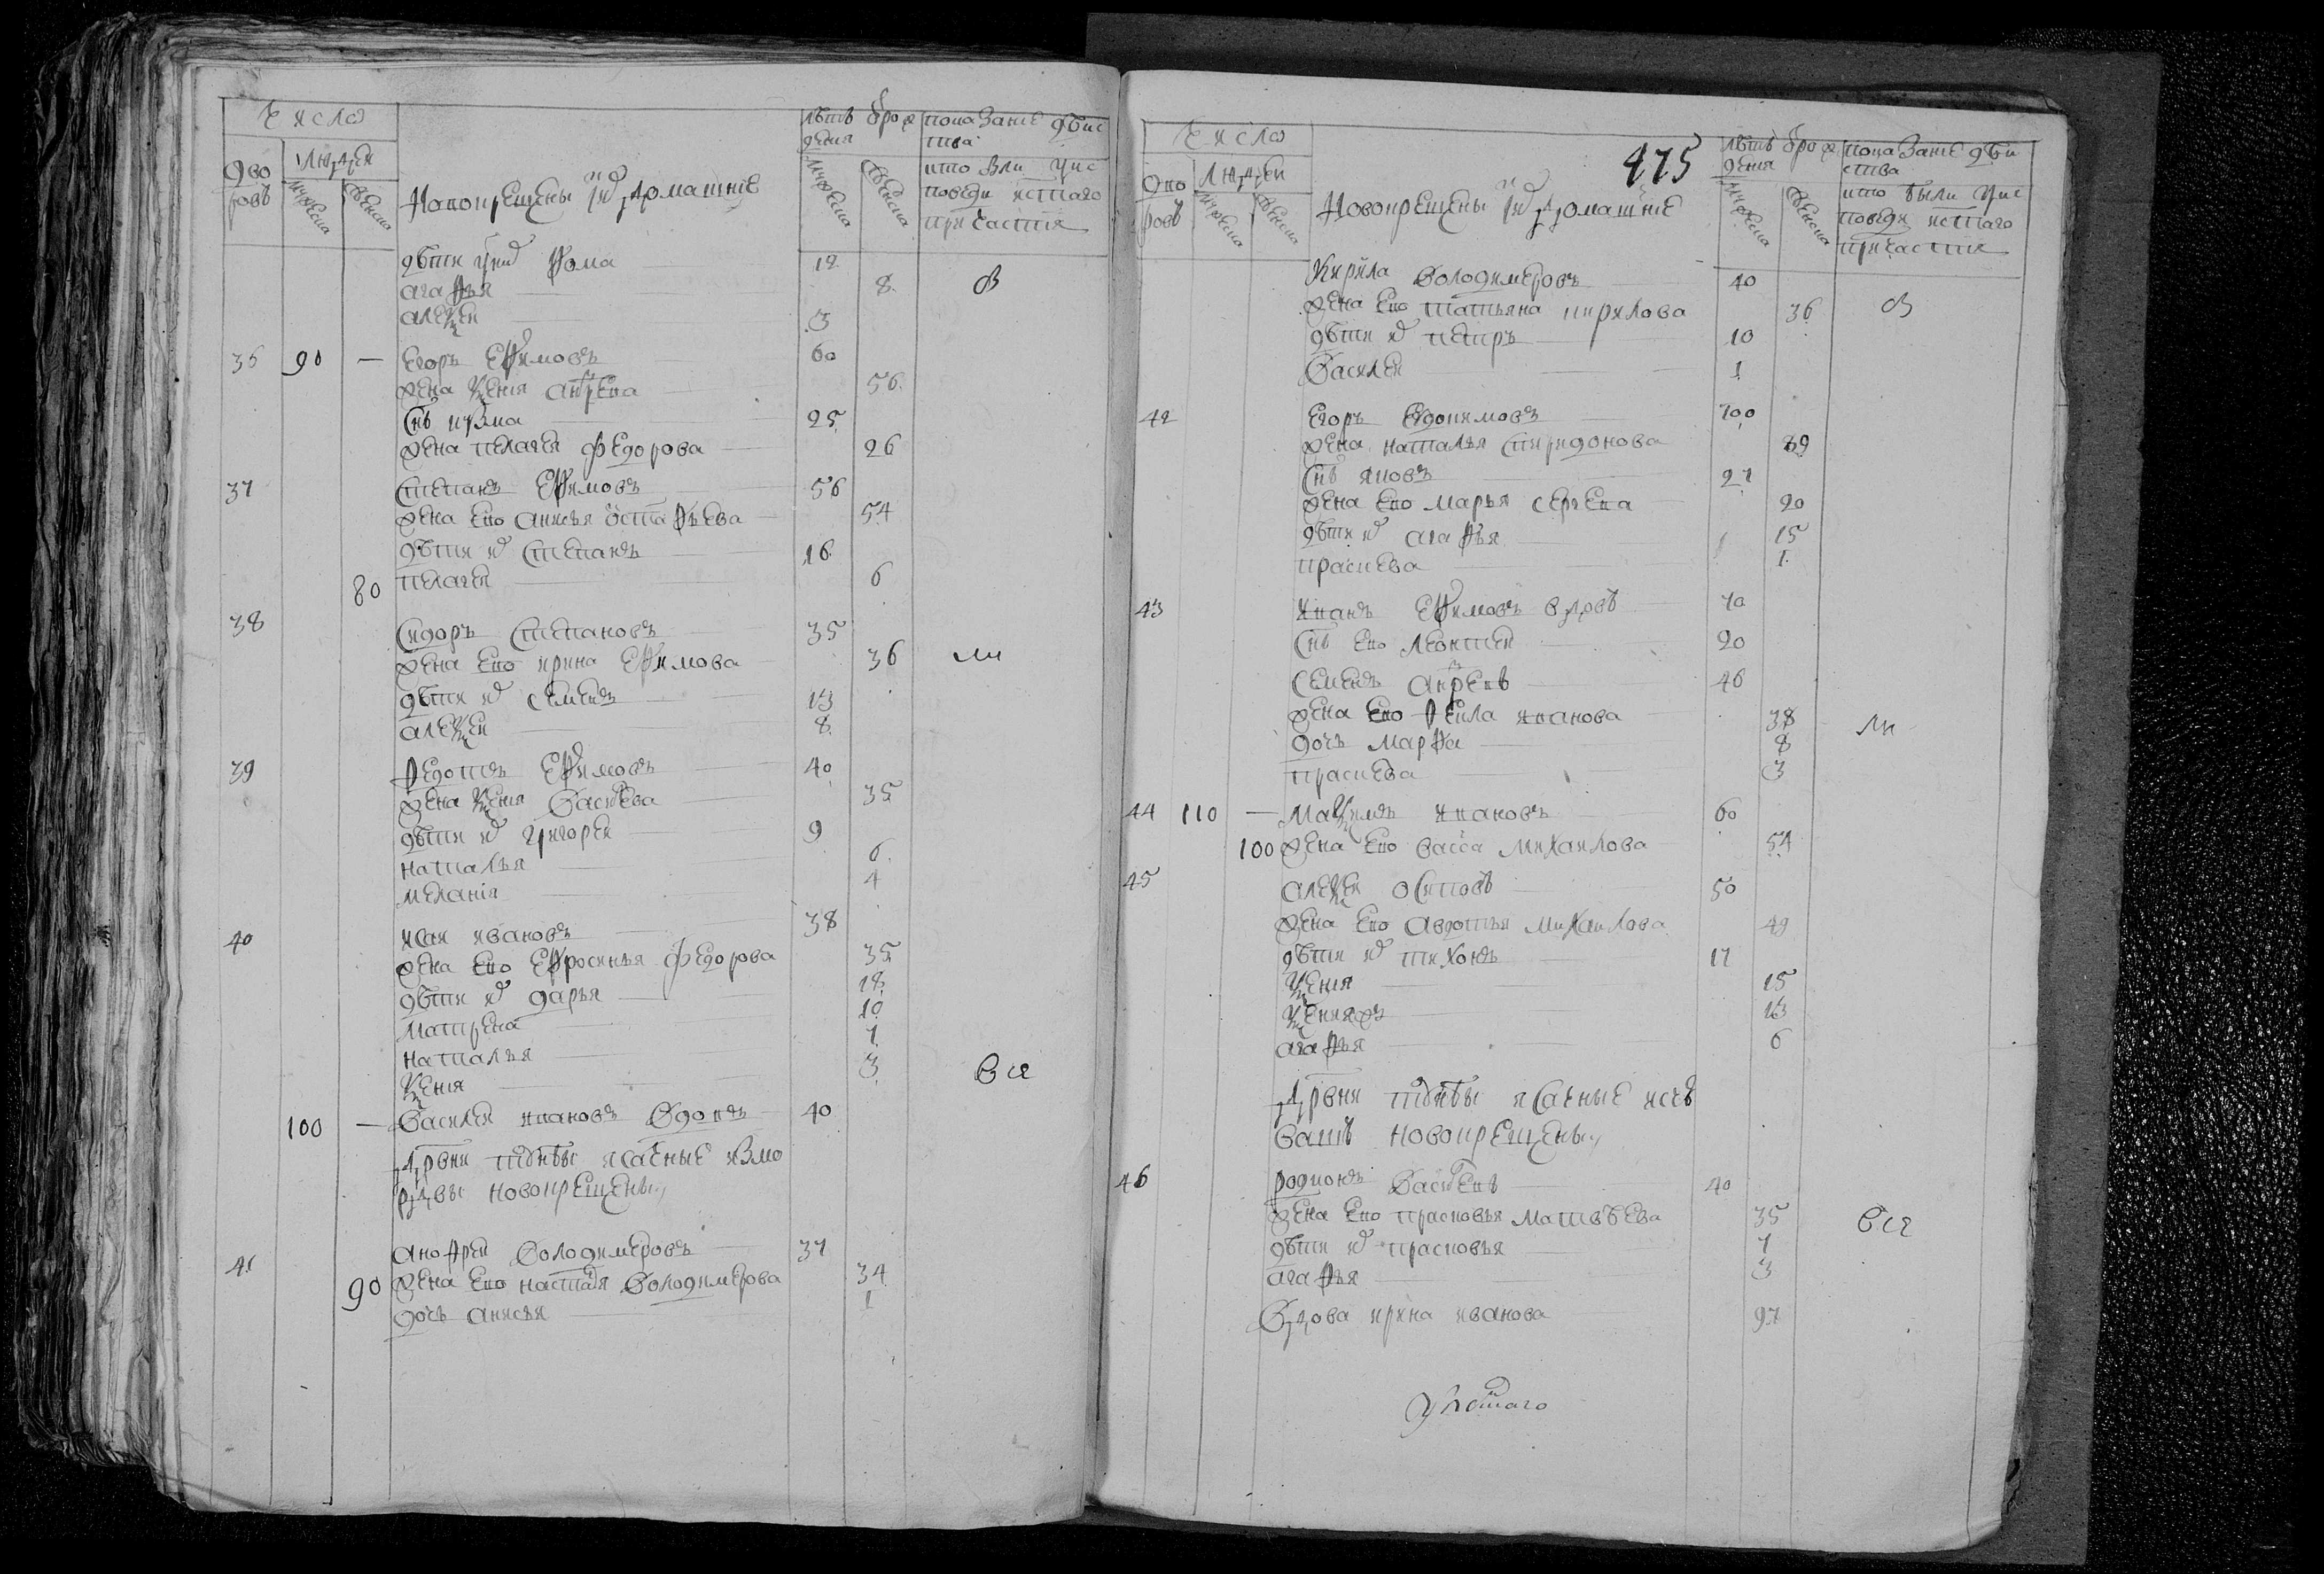 Числа
Дворовъ Людей
мужеска женска
Новокрещены и ихъ домашние
лѣтъ ѿ рождения
мужеска женска
показание дѣйства
кто были у исповеди и с̃таго причастия
дѣти у них Фома 12
агафья 8 В
алеѯей 3
36 90 — Егоръ Ефимовъ 60
жена ѯения андреева 56
сн҃ъ кузма 25
жена пелагея федорова 26
37 степанъ Ефимовъ 56
жена ево анисья остафьева 54
дѣти их степанъ 16
80 пелагея 6
38 сидоръ степановъ 35
жена ево ирина Ефимова 36 ли
дѣти их семенъ 13
алеѯей 8
39 федотъ Ефимовъ 40
жена ѯения васильева 35
дѣти их григорей 9
наталья 6
мелания 4
40 исаи ивановъ 38
жена ево Ефросинья федорова 35
дѣти их дарья 18
матрена 10
наталья 7
ѯения 3 все
100 — василей ивановъ вдовъ 40
Дрвни ясачные из мордвы новокрещены
41 анофрей володимеровъ 37
90 жена ево настасья володимерова 34
дочь анисья 1
475
Числа
Дворовъ Людей
мужеска женска
Новокрещены и ихъ домашние
лѣтъ ѿ рождения
мужеска женска
показание дѣйства
кто были у исповеди и с̃таго причастия
Кирила володимеровъ 40
жена ево татьяна кирилова 36 В
дѣти их петръ 10
василей 1
42 Егоръ Евдокимовъ 70
жена наталья спиридонова 89
сн҃ъ яковъ 27
жена ево марья сергеева 20
дѣти их агафья 15
праскева 1
43 иванъ Ефимовъ вдовъ 70
сн҃ъ ево леонтей 20
семенъ андреевъ 46
жена ево фекла иванова 38 ли
дочь марфа 8
праскева 3
44 110 — маѯимъ ивановъ 60
100 жена ево васса михаилова 54
45 алеѯей осиповъ 50
жена ево авдотья михаилова 49
дѣти их тихонъ 17
ѯения 15
ѯения ж 13
агафья 6
Дрвни ясачные исчювашъ новокрещены
46 родионъ васильевъ 40
жена ево прасковья матвѣева 35 все
дѣти их прасковья 7
агафья 3
Вдова ирина иванова 97